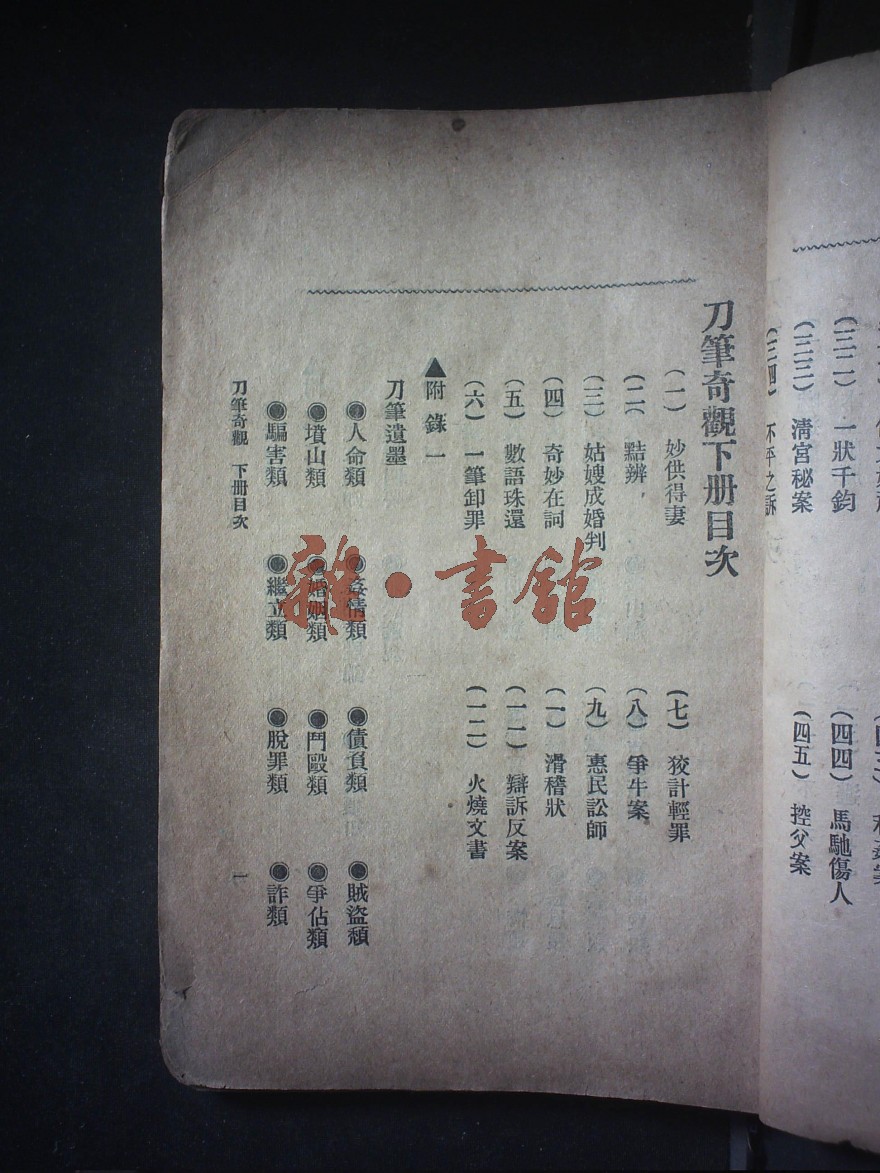 (三二) 一狀千鈞
(三三) 清宮秘案
(三四) 不平之訴
(四四) 馬馳傷人
(四五) 控父案
刀筆奇觀下册目次
(一) 妙供得妻
(七) 狡計輕罪
(二) 黠辨
(八) 爭牛案
(三) 姑嫂成婚判
(九) 惠民訟師
(四) 奇妙在詞
(一〇) 滑稽狀
(五) 數語珠還
(一一) 辯訴反案
(六) 一筆卸罪
(一二) 火燒文書
▲附錄一
刀筆遺墨
◉人命類 ◉姦情類 ◉債負類 ◉賊盜類
◉墳山類 ◉婚姻類 ◉鬥毆類 ◉爭佔類
◉騙害類 ◉繼立類 ◉脫罪類 ◉詐類
刀筆奇觀 下册目次 一
雜·書館